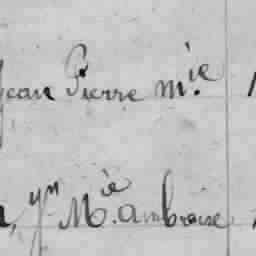 Jean Pierre m.ie
yn M.ie ambroise